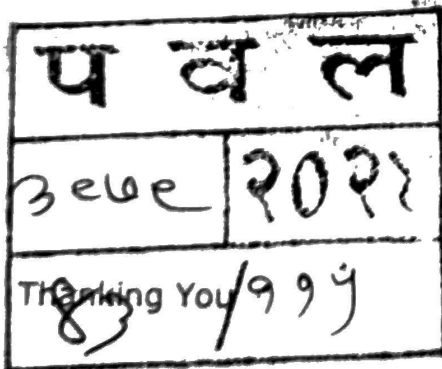 प व ल
३९७९ २०२१
Thanking You
४३/११५